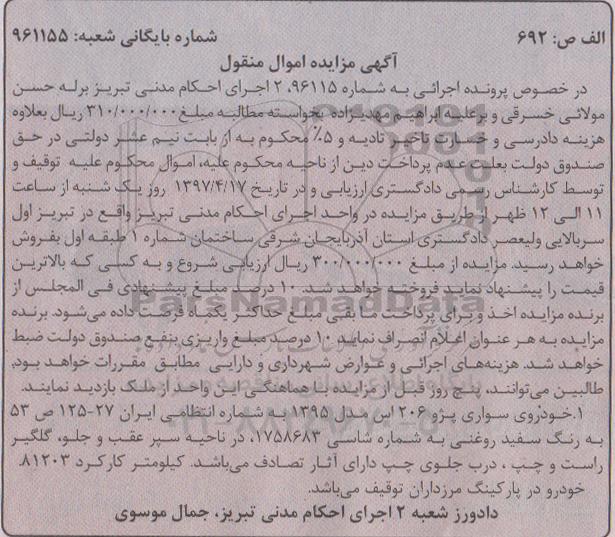 الف ص: ۶۹۲
شماره بایگانی شعبه: ۹۶۱۱۵۵
آگهی مزایده اموال منقول
در خصوص پرونده اجرائی به شماره ۹۶۱۱۵، ۲ اجرای احکام مدنی تبریز برله حسن
مولائی خسرقی و برعلیه ابراهیم مهدیزاده بخواسته مطالبه مبلغ ۳۱۰/۰۰۰/۰۰۰ ریال بعلاوه
هزینه دادرسی و خسارت تاخیر تادیه و ۵٪ محکوم به از بابت نیم عشر دولتی در حق
صندوق دولت بعلت عدم پرداخت دین از ناحیه محکوم علیه، اموال محکوم علیه توقیف و
توسط کارشناس رسمی دادگستری ارزیابی و در تاریخ ۱۳۹۷/۴/۱۷ روز یک شنبه از ساعت
۱۱ الی ۱۲ ظهر از طریق مزایده در واحد اجرای احکام مدنی تبریز واقع در تبریز اول
سربالایی ولیعصر دادگستری استان آذربایجان شرقی ساختمان شماره ۱ طبقه اول بفروش
خواهد رسید. مزایده از مبلغ ۳۰۰/۰۰۰/۰۰۰ ریال ارزیابی شروع و به کسی که بالاترین
قیمت را پیشنهاد نماید فروخته خواهد شد. ۱۰ درصد مبلغ پیشنهادی فی المجلس از
برنده مزایده اخذ و برای پرداخت مابقی مبلغ حداکثر یکماه فرصت داده می‌شود. برنده
مزایده به هر عنوان اعلام انصراف نماید ۱۰ درصد مبلغ واریزی بنفع صندوق دولت ضبط
خواهد شد. هزینه‌های اجرائی و عوارض شهرداری و دارایی مطابق مقررات خواهد بود.
طالبین می‌توانند، پنج روز قبل از مزایده با هماهنگی این واحد از ملک بازدید نمایند.
۱.خودروی سواری پژو ۲۰۶ اس مدل ۱۳۹۵ به شماره انتظامی ایران ۲۷-۱۲۵ ص ۵۳
به رنگ سفید روغنی به شماره شاسی ۱۷۵۸۶۸۳، در ناحیه سپر عقب و جلو، گلگیر
راست و چپ ، درب جلوی چپ دارای آثار تصادف می‌باشد. کیلومتر کارکرد ۸۱۲۰۳
خودرو در پارکینگ مرزداران توقیف می‌باشد.
دادورز شعبه ۲ اجرای احکام مدنی تبریز، جمال موسوی
ParsNamadData
۰۲۱-۸۸۳۴۹۶۷۰-۵